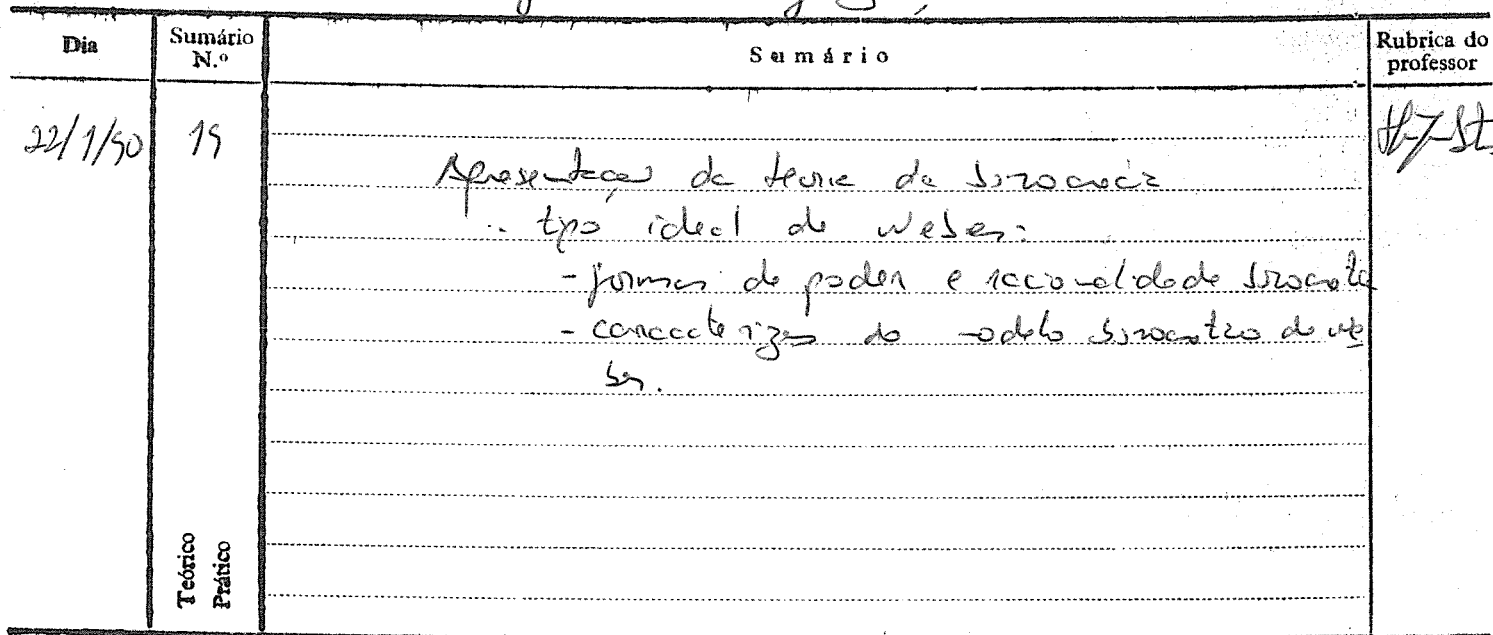 Dia
Sumário
N.º
Sumário
Rubrica do
professor
22/1/90
19
Apresentação da teoria da burocracia
- tipo ideal de Weber:
- formas de poder e racionalidade burocrática
- caracterização do modelo burocrático de We
ber.
Teórico
Prático